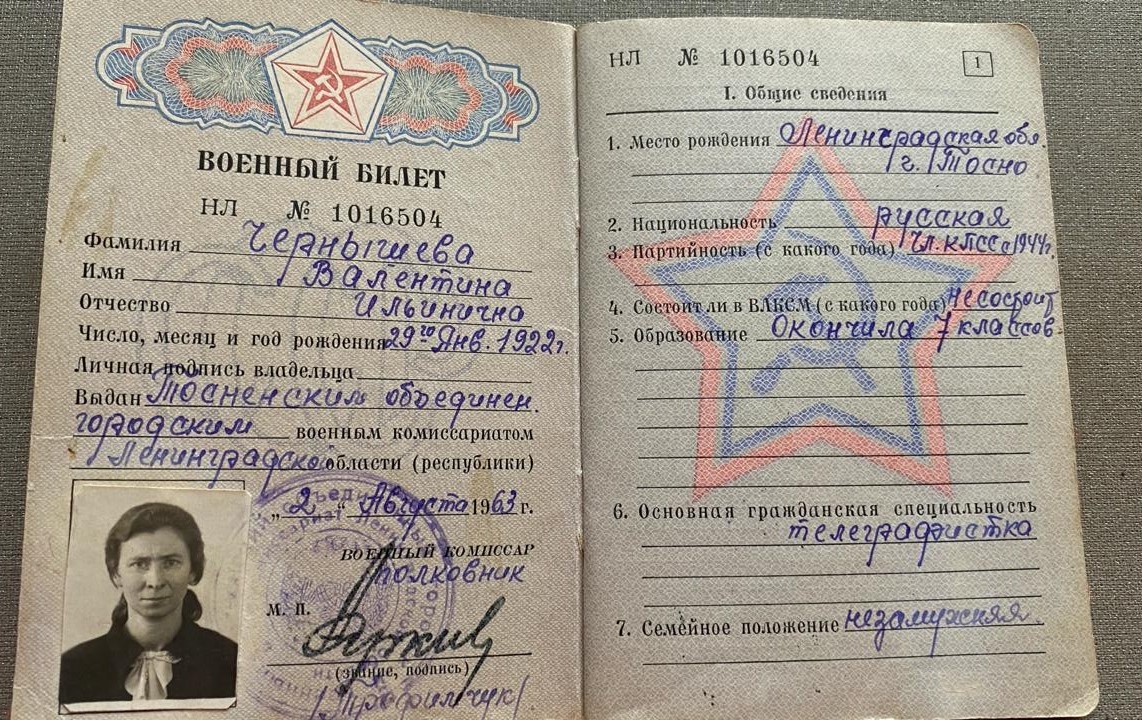 ВОЕННЫЙ БИЛЕТ
НЛ № 1016504
Фамилия Чернышева
Имя Валентина
Отчество Ильинична
Число, месяц и год рождения 29го Янв. 1922г.
Личная подпись владельца
Выдан Тосненским объединен.
городским военным комиссариатом
Ленинградской области (республики)
„2“ Августа 1963 г.
ВОЕННЫЙ КОМИССАР
полковник
М. П.
(звание, подпись)
/Трофимчук/
НЛ № 1016504
1
I. Общие сведения
1. Место рождения Ленинградская обл.
г. Тосно
2. Национальность русская
3. Партийность (с какого года) Чл. КПСС с 1944г.
4. Состоит ли в ВЛКСМ (с какого года) не состоит
5. Образование Окончила 7 классов.
6. Основная гражданская специальность
телеграфистка
7. Семейное положение незамужняя